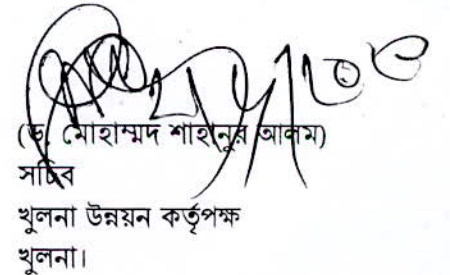 (ড. মোহাম্মদ শাহানুর আলম)
সচিব
খুলনা উন্নয়ন কর্তৃপক্ষ
খুলনা।